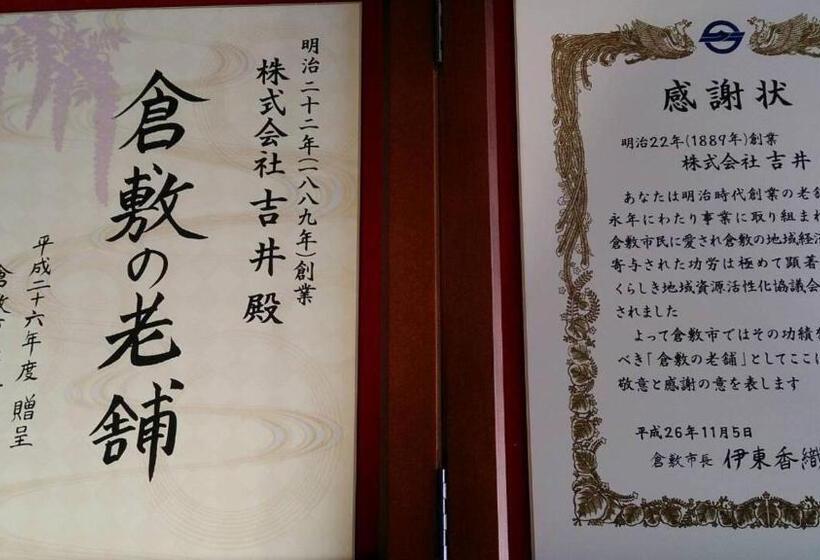 明治二十二年(一八八九年)創業
株式会社 吉井 殿
倉敷の老舗
平成二十六年度 贈呈
倉敷市
感謝状
明治22年(1889年)創業
株式会社 吉井
あなたは明治時代創業の老舗
永年にわたり事業に取り組まれ
倉敷市民に愛され倉敷の地域経済
寄与された功労は極めて顕著
くらしき地域資源活性化協議会
されました
よって倉敷市ではその功績を
べき「倉敷の老舗」としてここに
敬意と感謝の意を表します
平成26年11月5日
倉敷市長 伊東香織